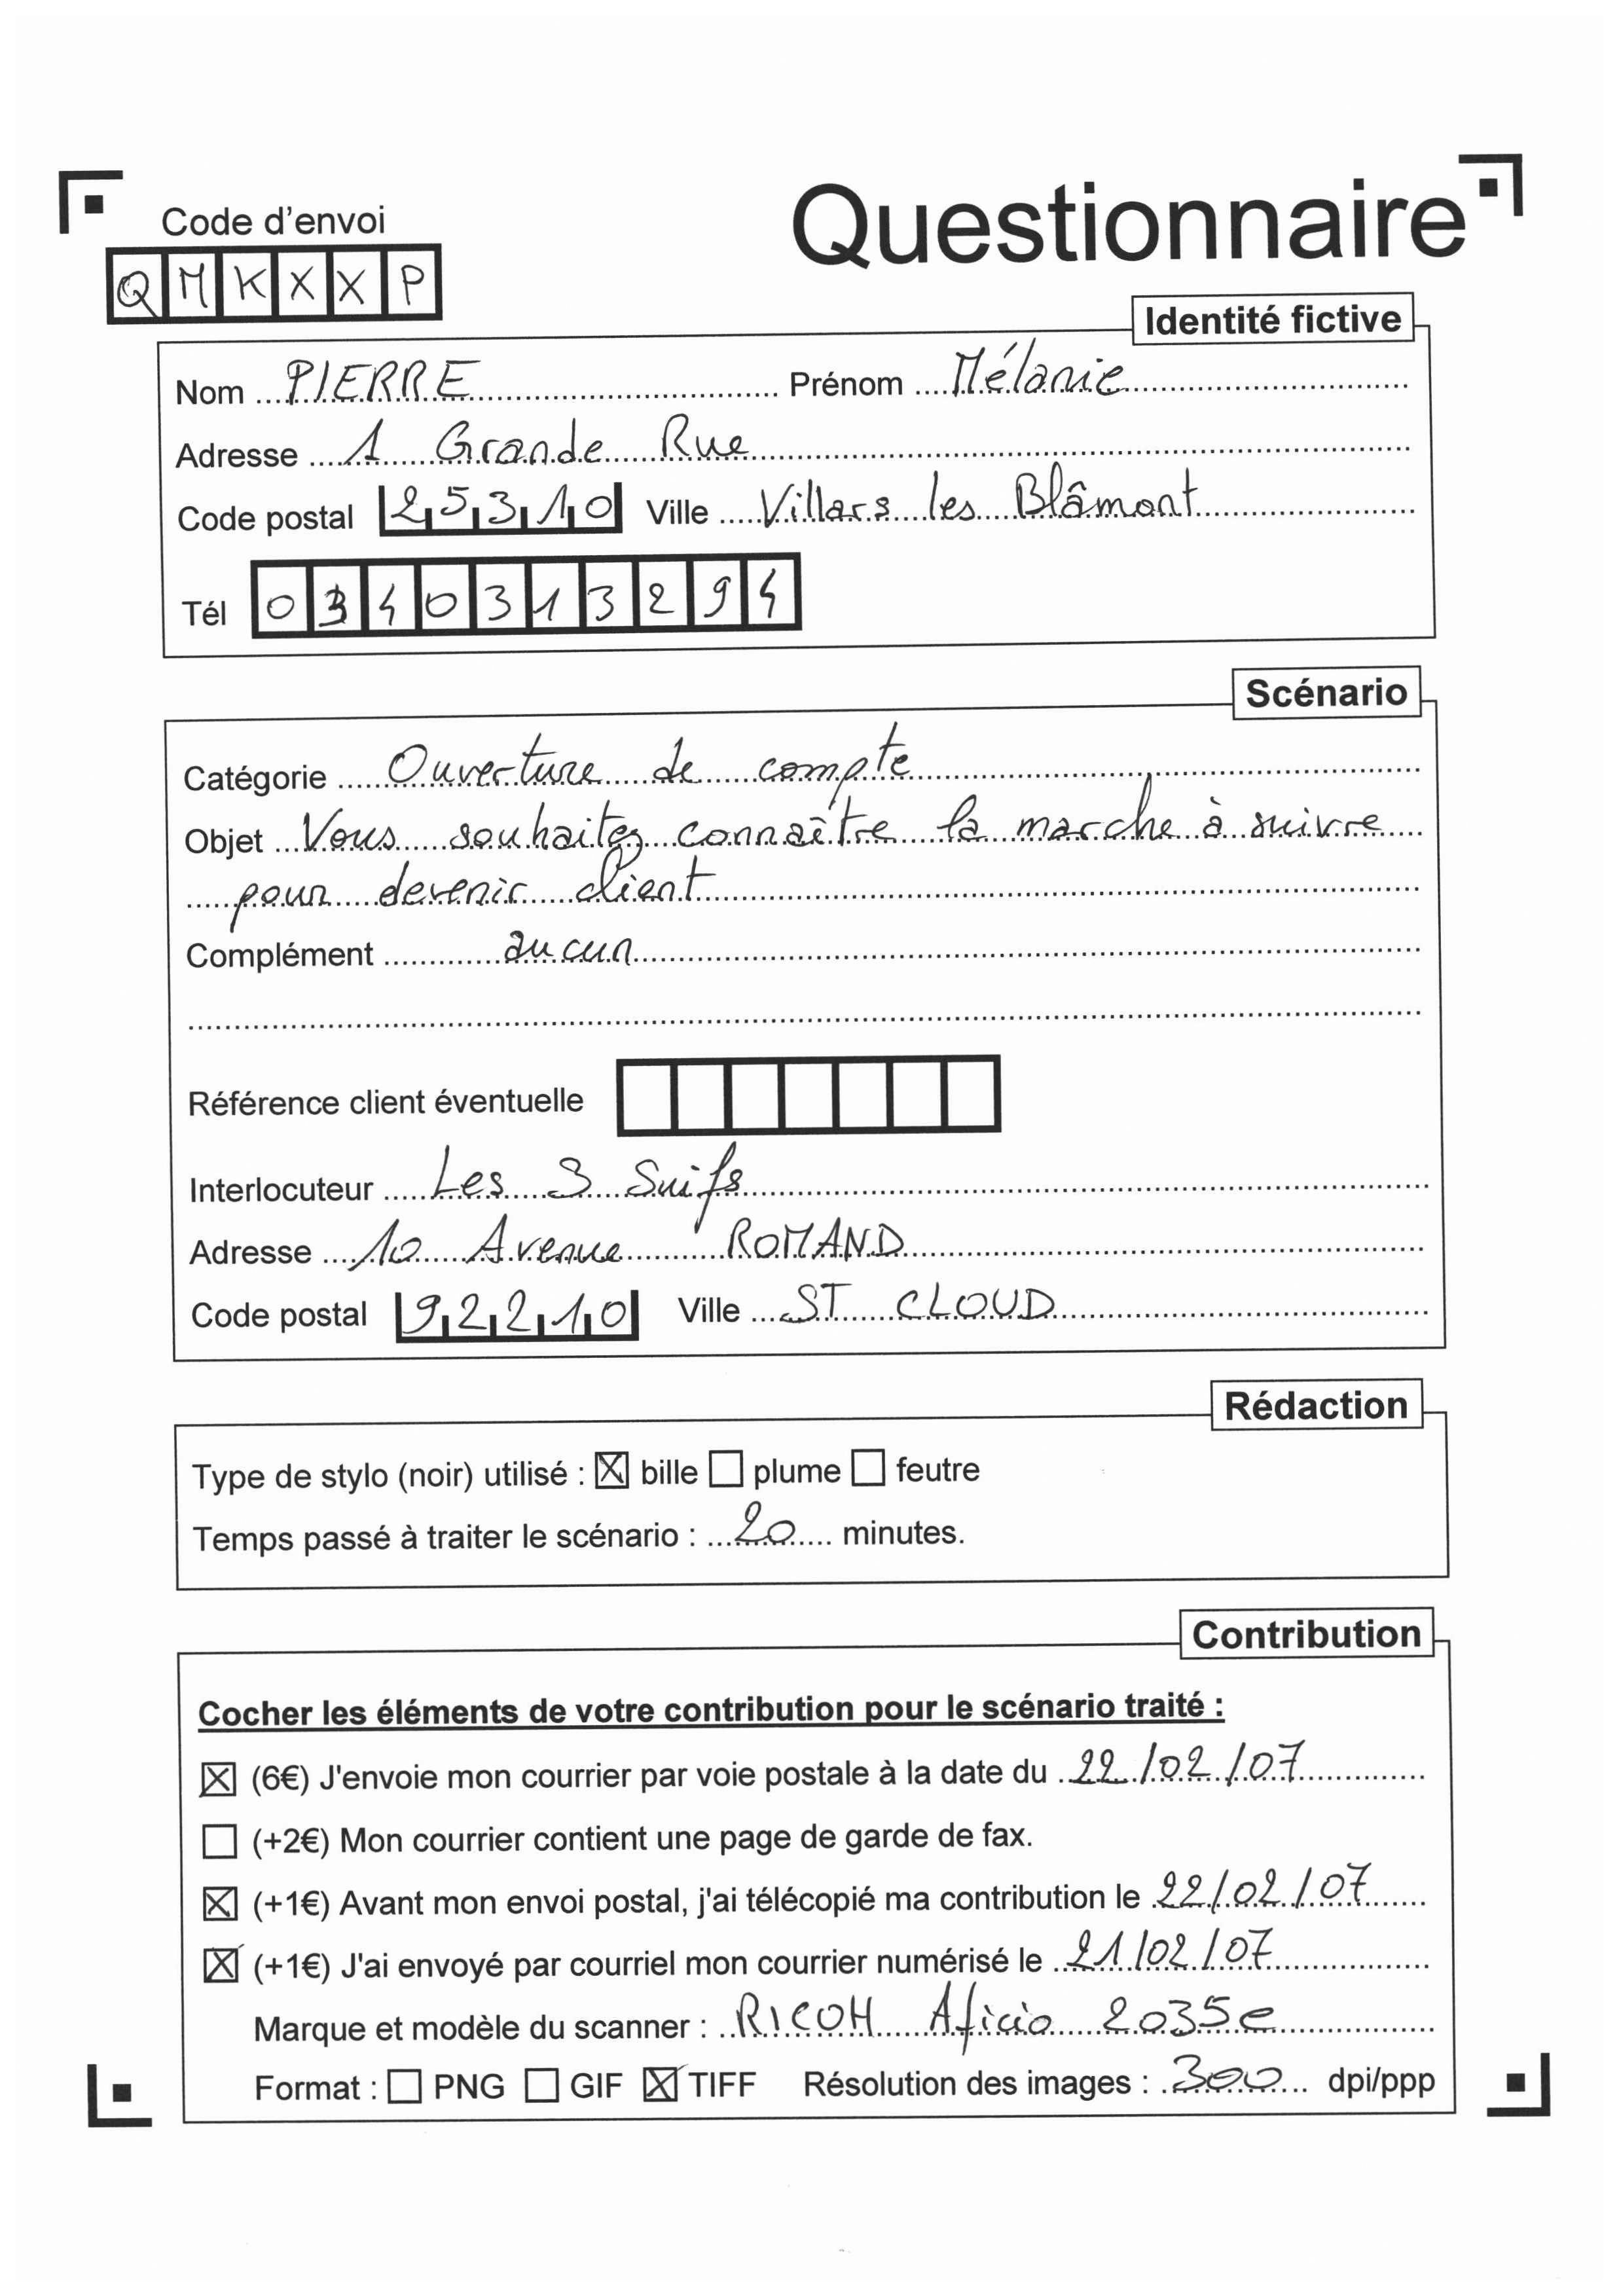 Questionnaire
Code d'envoi
QMKXXP
Identité fictive
Nom PIERRE Prénom Mélanie
Adresse 1 Grande Rue
Code postal 25310 Ville Villars les Blâmont
Tél 0340313294
Scénario
Catégorie Ouverture de compte
Objet Vous souhaitez connaître la marche à suivre
pour devenir client
Complément aucun
Référence client éventuelle
Interlocuteur Les 3 Suifs
Adresse 10 Avenue ROMAND
Code postal 92210 Ville ST CLOUD
Rédaction
Type de stylo (noir) utilisé : ☒ bille ☐ plume ☐ feutre
Temps passé à traiter le scénario : 20 minutes.
Contribution
Cocher les éléments de votre contribution pour le scénario traité :
☒ (6€) J'envoie mon courrier par voie postale à la date du 22/02/07
☐ (+2€) Mon courrier contient une page de garde de fax.
☒ (+1€) Avant mon envoi postal, j'ai télécopié ma contribution le 22/02/07
☒ (+1€) J'ai envoyé par courriel mon courrier numérisé le 21/02/07
Marque et modèle du scanner : RICOH Aficio 2035e
Format : ☐ PNG ☐ GIF ☒ TIFF Résolution des images : 300 dpi/ppp